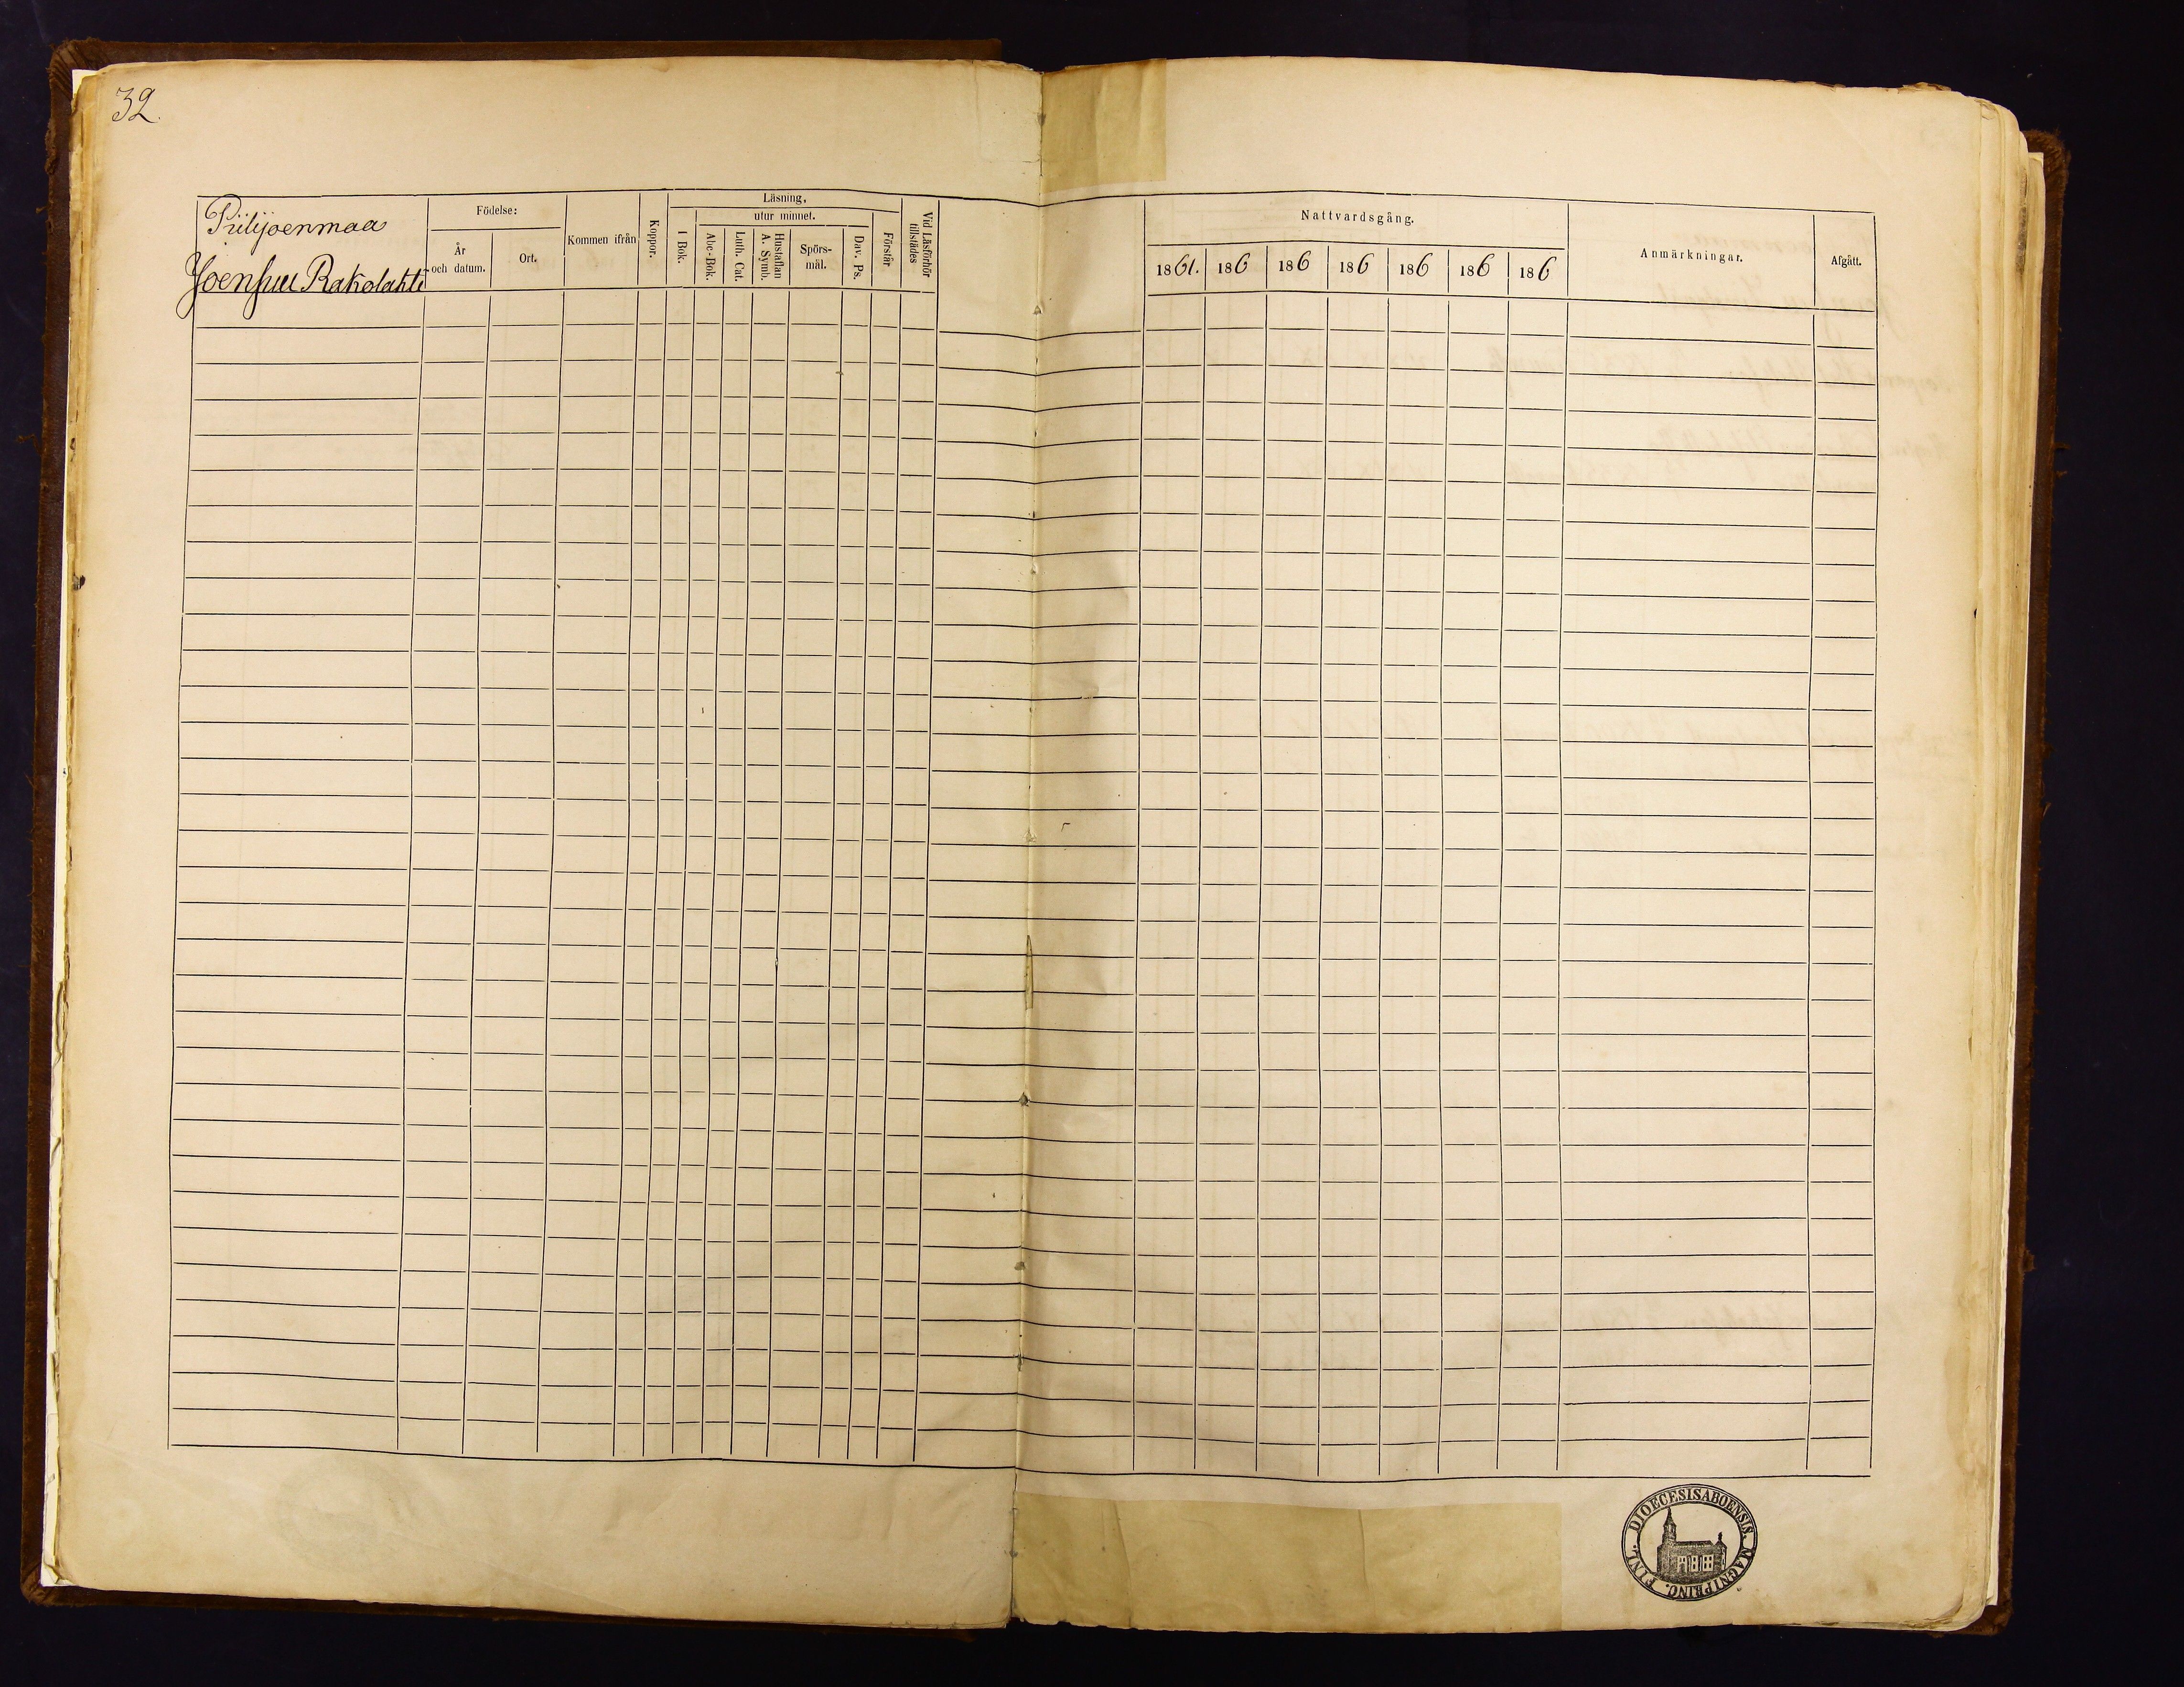 32.
Piilijoenmaa
Joensuu Rakolahti
Födelse:
År och datum.
Ort.
Kommen ifrån
Koppor.
Läsning,
utur minnet.
I Bok.
Abc-Bok.
Luth. Cat.
Hustaflan A. Symb.
Spörs-
mål.
Dav. Ps.
Förstår
Vid Läsförhör tillstädes
Nattvardsgång.
1861. 186 186 186 186 186 186
Anmärkningar.
Afgått.
DIOECESIS ABOENSIS. MAGNI PRINC. FINL.